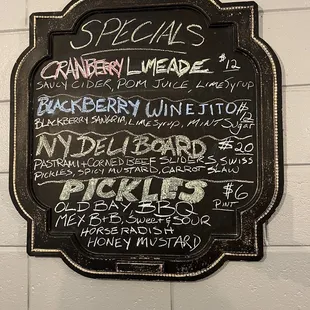 SPECIALS
CRANBERRY LIMEADE $12
SAUCY CIDER, POM JUICE, LIME SYRUP
BLACKBERRY WINEJITO $12
BLACKBERRY SANGRIA, LIME SYRUP, MINT Sugar
NY DELI BOARD $20
PASTRAMI + CORNED BEEF SLIDERS, SWISS
PICKLES, SPICY MUSTARD, CARROT SLAW
PICKLES $6
OLD BAY, BBQ PINT
MEX B+B, Sweet + SOUR
HORSERADISH
HONEY MUSTARD